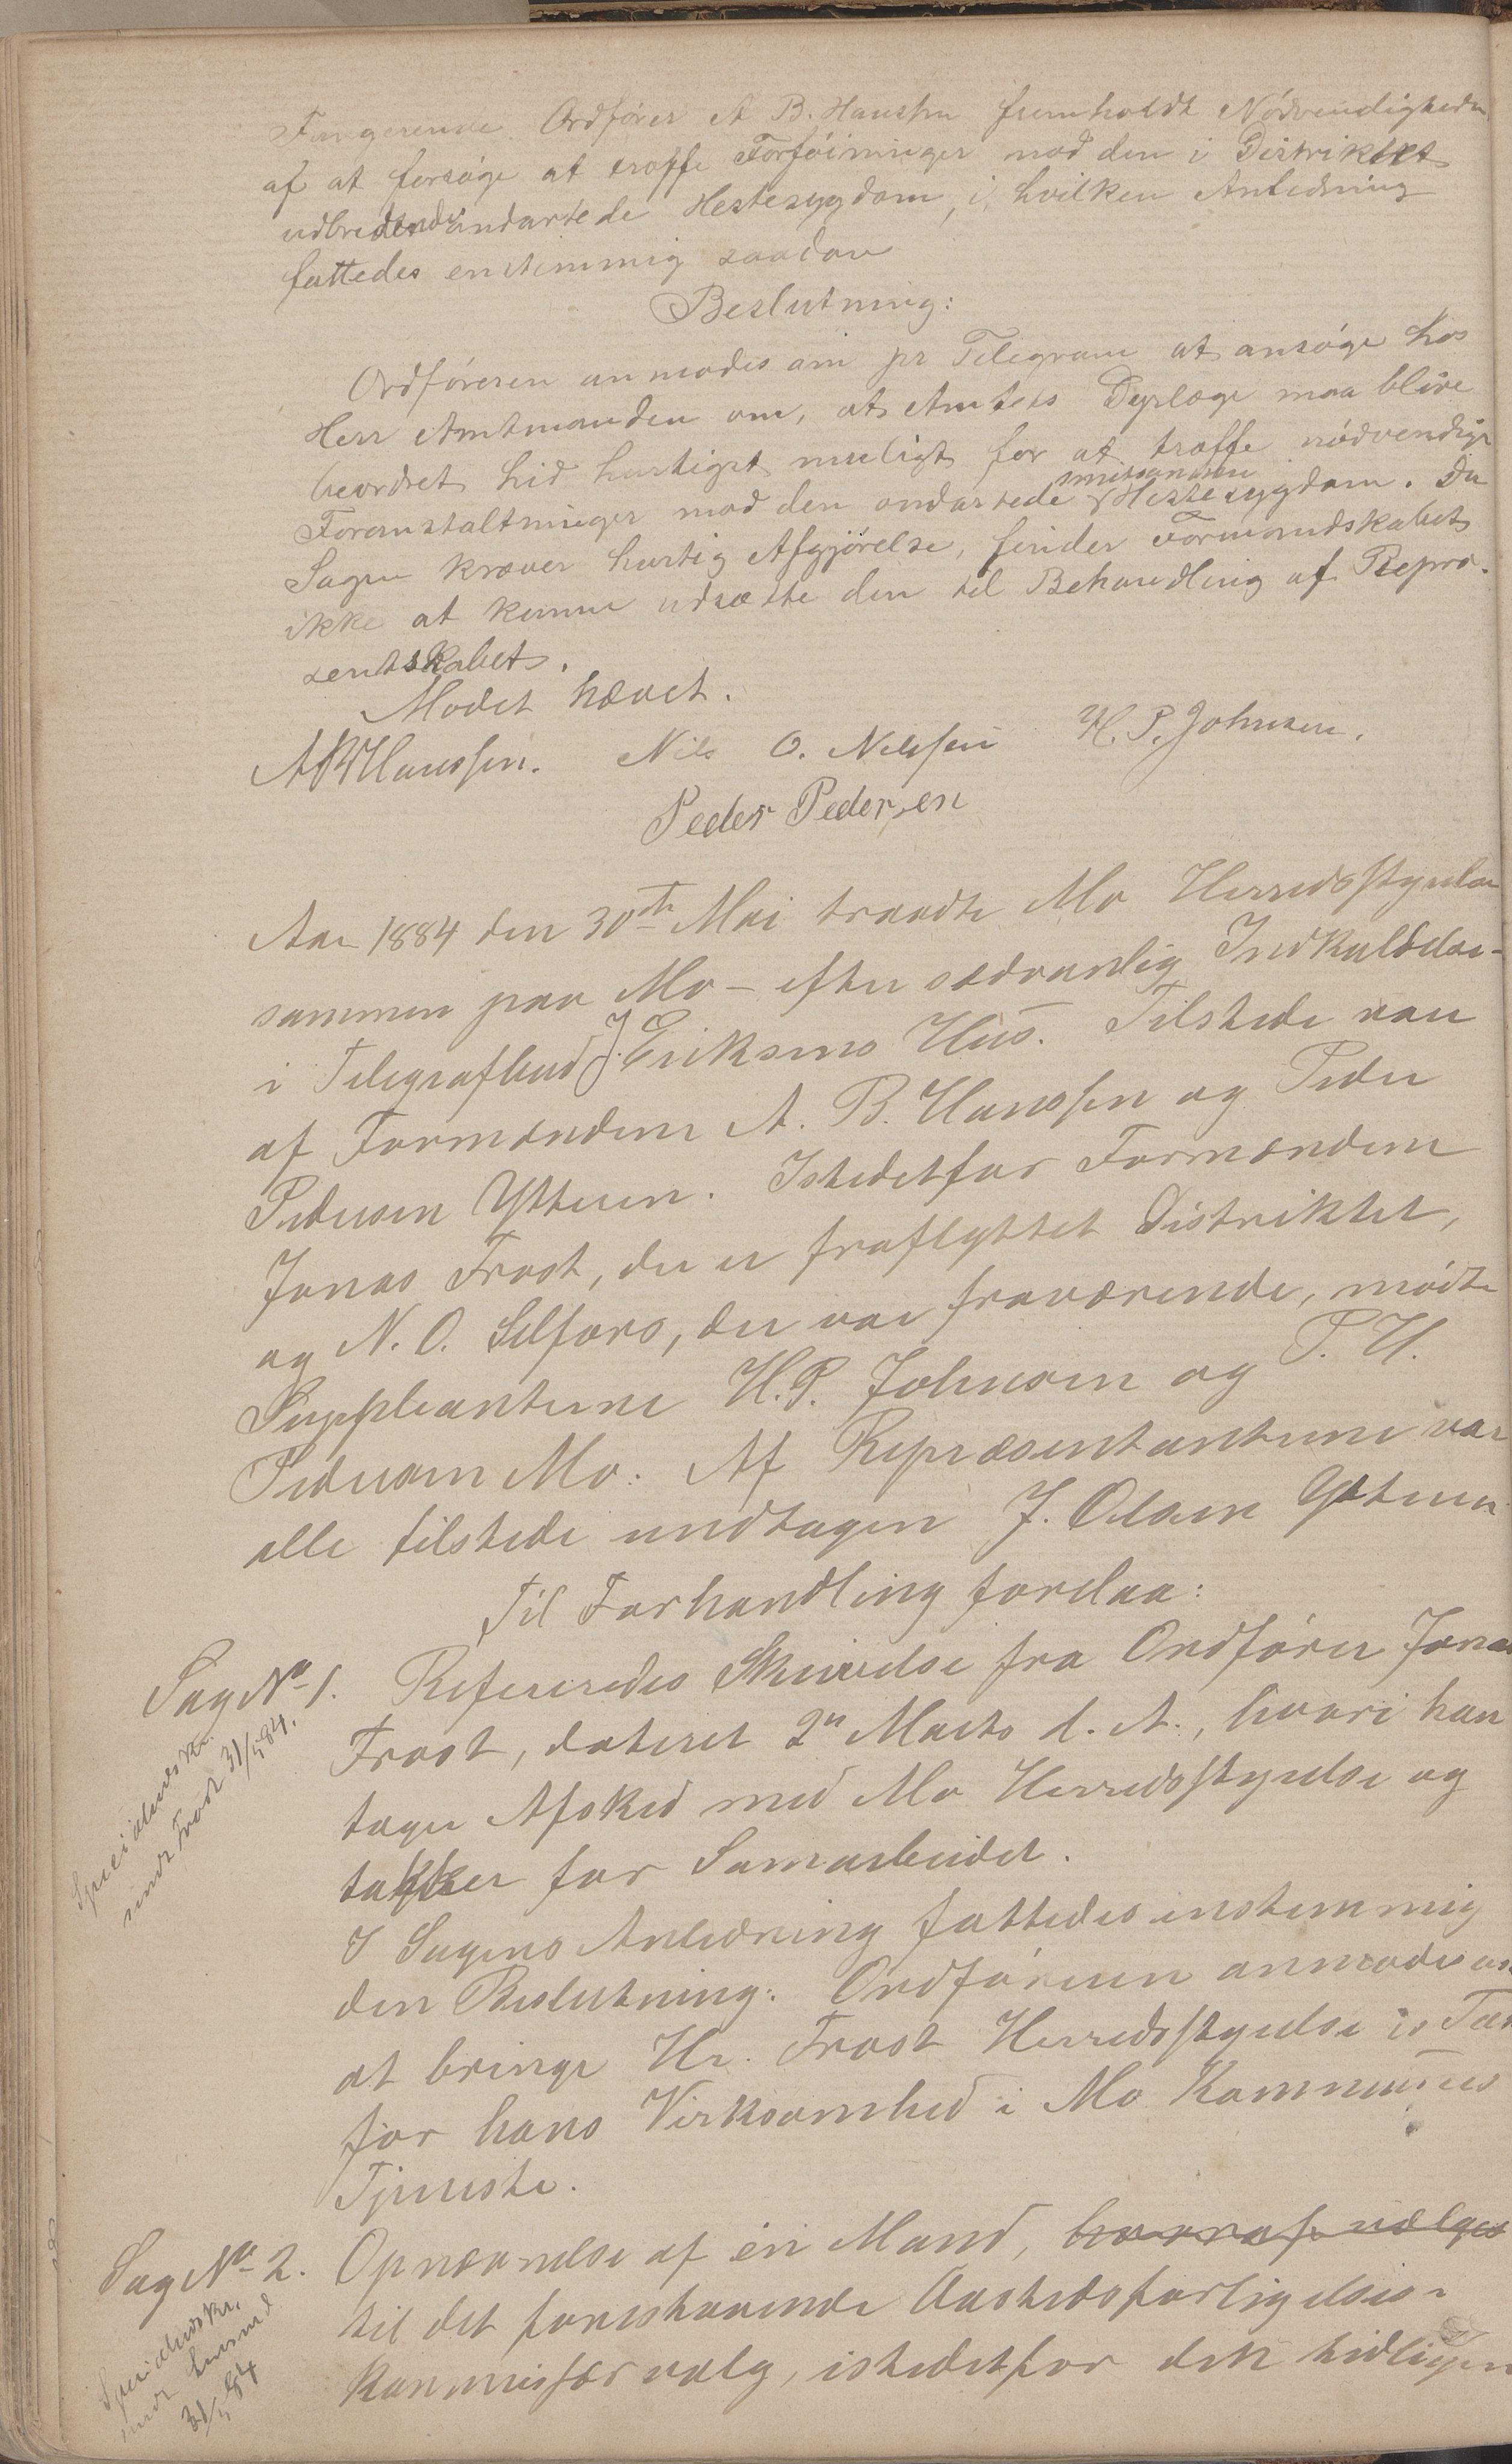 Fungerende Ordfører A B. Hanssen fremholdt Nødvendigheden
af at forsøge at træffe Forføininger mod den i Distriktet
udbredende ondartede Hestesygdom, i hvilken Anledning
fattedes enstemmig saadan
Beslutning:
Ordføreren anmodes om pr Telegram at ansøge hos
Herr Amtmanden om, at Amtets Dyrlæge maa blive
beordret hid hurtigst muligt for at træffe nødvendige
smitsomme
Foranstaltninger mod den ondartede Hestesygdom. Da
Sagen kræver hurtig Afgjørelse, finder Formandskabet
ikke at kunne udsætte den til Behandling af Repræ-
sentskabet.
Mødet hævet.
A B Hanssen. Nils O. Nilssen H. P. Johnsen.
Peder Pedersen
Aar 1884 den 30te Mai traadte Mo Herredsstyrelse
sammen paa Mo – efter sædvanlig Indkaldelse –
i Telegrafbud J. Eriksens Hus. Tilstede var
af Formændene A. B. Hanssen og Peder
Pedersen Ytteren. Istedetfor Formændene
Jonas Frost, der er fraflyttet Distriktet,
og N. O. Selfors, der var fraværende, mødte
Suppleanterne H. P. Johnsen og P. H.
Pedersen Mo. Af Repræsentanterne var
alle tilstede undtagen J. Olsen Ytteren
Til Forhandling forelaa:
Sag No 1. Refereredes Skrivelse fra Ordfører Jonas
Frost, dateret 2n Marts d. A., hvori han
tager Afsked med Mo Herredsstyrelse og
takker for Samarbeidet.
Specialudskr.
sendt Frost 31/5 84.
I Sagens Anledning fattedes enstemmig
den Beslutning: Ordføreren anmodes om
at bringe Hr. Frost Herredsstyrelse's Tak
for hans Virksomhed i Mo Kommunes
Tjeneste.
Sag No 2. Opnævnelse af én Mand, hvoraf vælges
til det forestaaende Aastedsforligelses-
kommissærvalg, istedetfor den tidligere
Specialudskr.
sendt
31/5 84